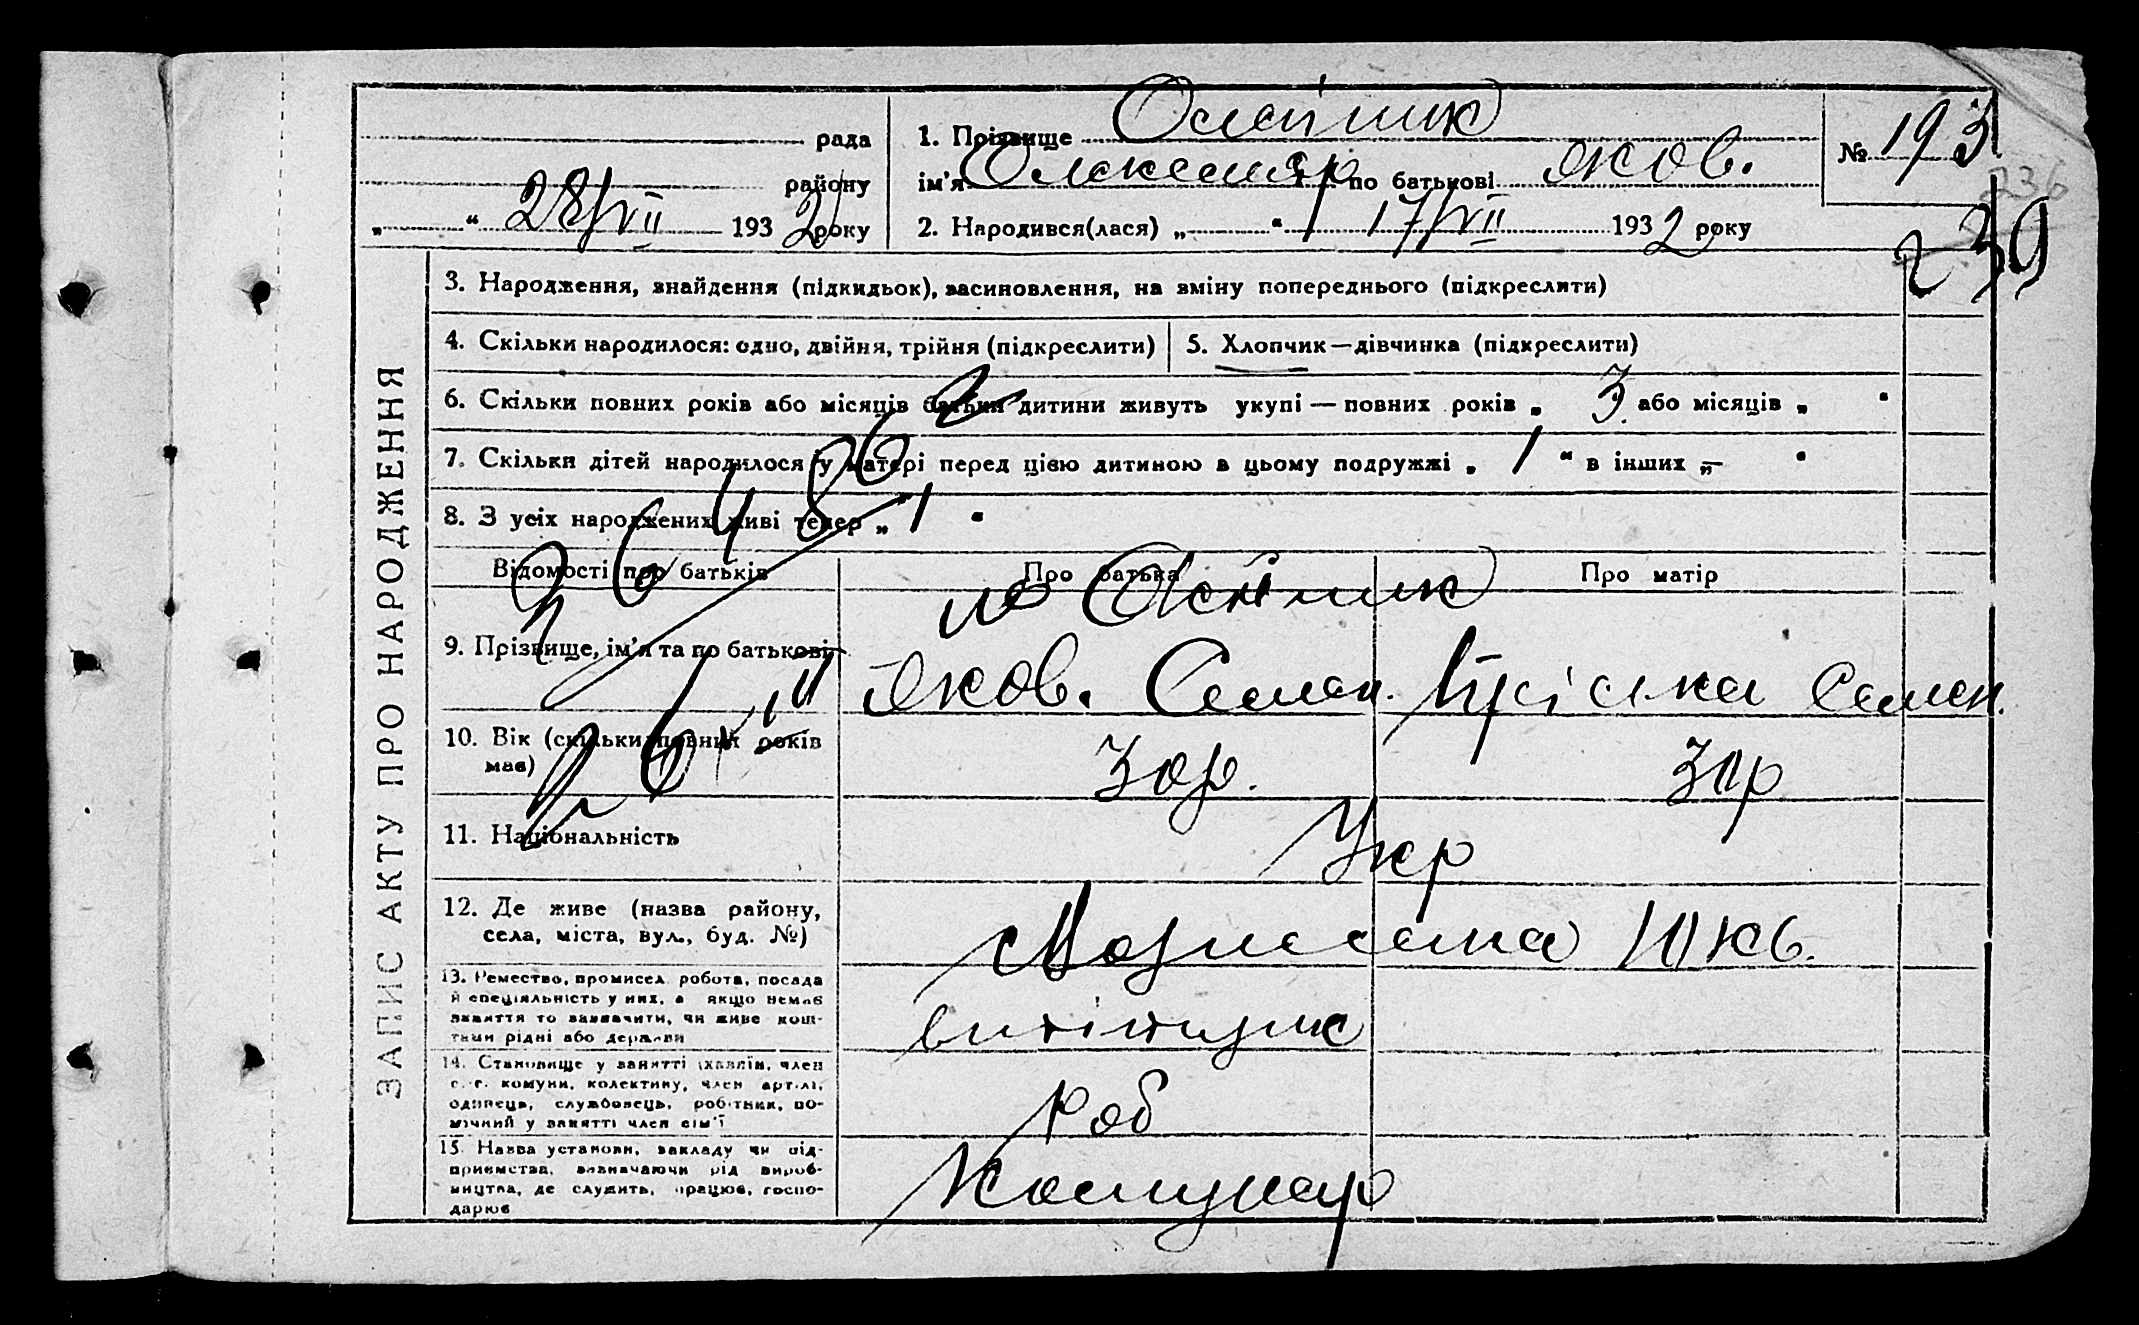 рада
району
„ “ 28/VII 1932 року
1. Прізвище Олейник
ім'я Олександр по батькові Яков.
2. Народився(лася) „ “ 17/VII 1932 року
№ 193
236
239
ЗАПИС АКТУ ПРО НАРОДЖЕННЯ
3. Народження, знайдення (підкидьок), засиновлення, на зміну попереднього (підкреслити)
4. Скільки народилося: одно, двійня, трійня (підкреслити)
5. Хлопчик—дівчинка (підкреслити)
6. Скільки повних років або місяців батьки дитини живуть укупі — повних років „ 3 або місяців „ “
7. Скільки дітей народилося у матері перед цією дитиною в цьому подружжі „ 1 “ в інших „— “
8. З усіх народжених живі тепер „ 1 “
Відомості про батьків
Про батька
Про матір
9. Прізвище, ім'я та по батькові
Олейник
Яков. Семен.
Семен.
10. Вік (скільки повних років має)
30 р.
11. Національність
Укр
12. Де живе (назва району, села, міста, вул., буд. №)
13. Ремество, промисел, робота, посада
й спеціяльність у них, а якщо немає
заняття то зазначити, чи живе кош-
тами рідні або держави
14. Становище у занятті (хазяїн, член
с.-г. комуни, колективу, член артілі,
одинець, службовець, робітник, по-
мічний у занятті член сім'ї
Роб
15. Назва установи, закладу чи під-
приємства, зазначаючи рід вироб-
ництва, де служить, працює, госпо-
дарює
Комунар